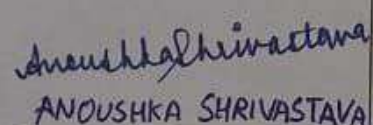 Anoushka Shrivastava
ANOUSHKA SHRIVASTAVA